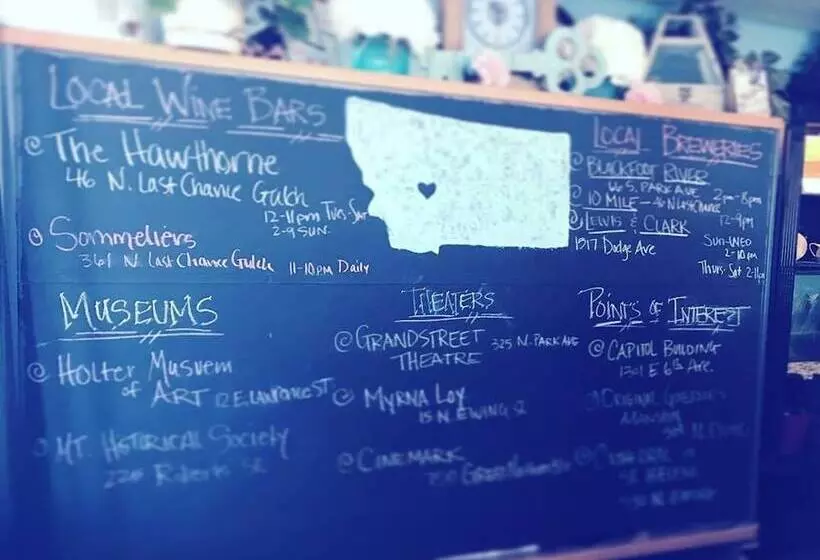 LOCAL WINE BARS
@ The Hawthorne
46 N. Last Chance Gulch
12-11pm Tues-Sat
2-9 SUN.
@ Sommeliers
361 N. Last Chance Gulch 11-10PM Daily
LOCAL BREWERIES
@ BLACKFOOT RIVER
66 S. PARK AVE 2pm-8pm
@ 10 MILE - 46 N Last Chance
12-9pm
@ LEWIS & CLARK
1517 Dodge Ave
Sun-Wed
2-10pm
Thurs-Sat
MUSEUMS
@ HOLTER MUSEUM
OF ART 12 E. LAWRENCE ST
@ MT. HISTORICAL SOCIETY
Roberts St.
THEATERS
@ GRANDSTREET
THEATRE 325 N. PARK AVE
@ MYRNA LOY
15 N. EWING St
@ CINEMARK
Great Northern
POINTS OF INTEREST
@ CAPITOL BUILDING
1301 E 6th Ave.
ORIGINAL GOVERNOR'S
MANSION